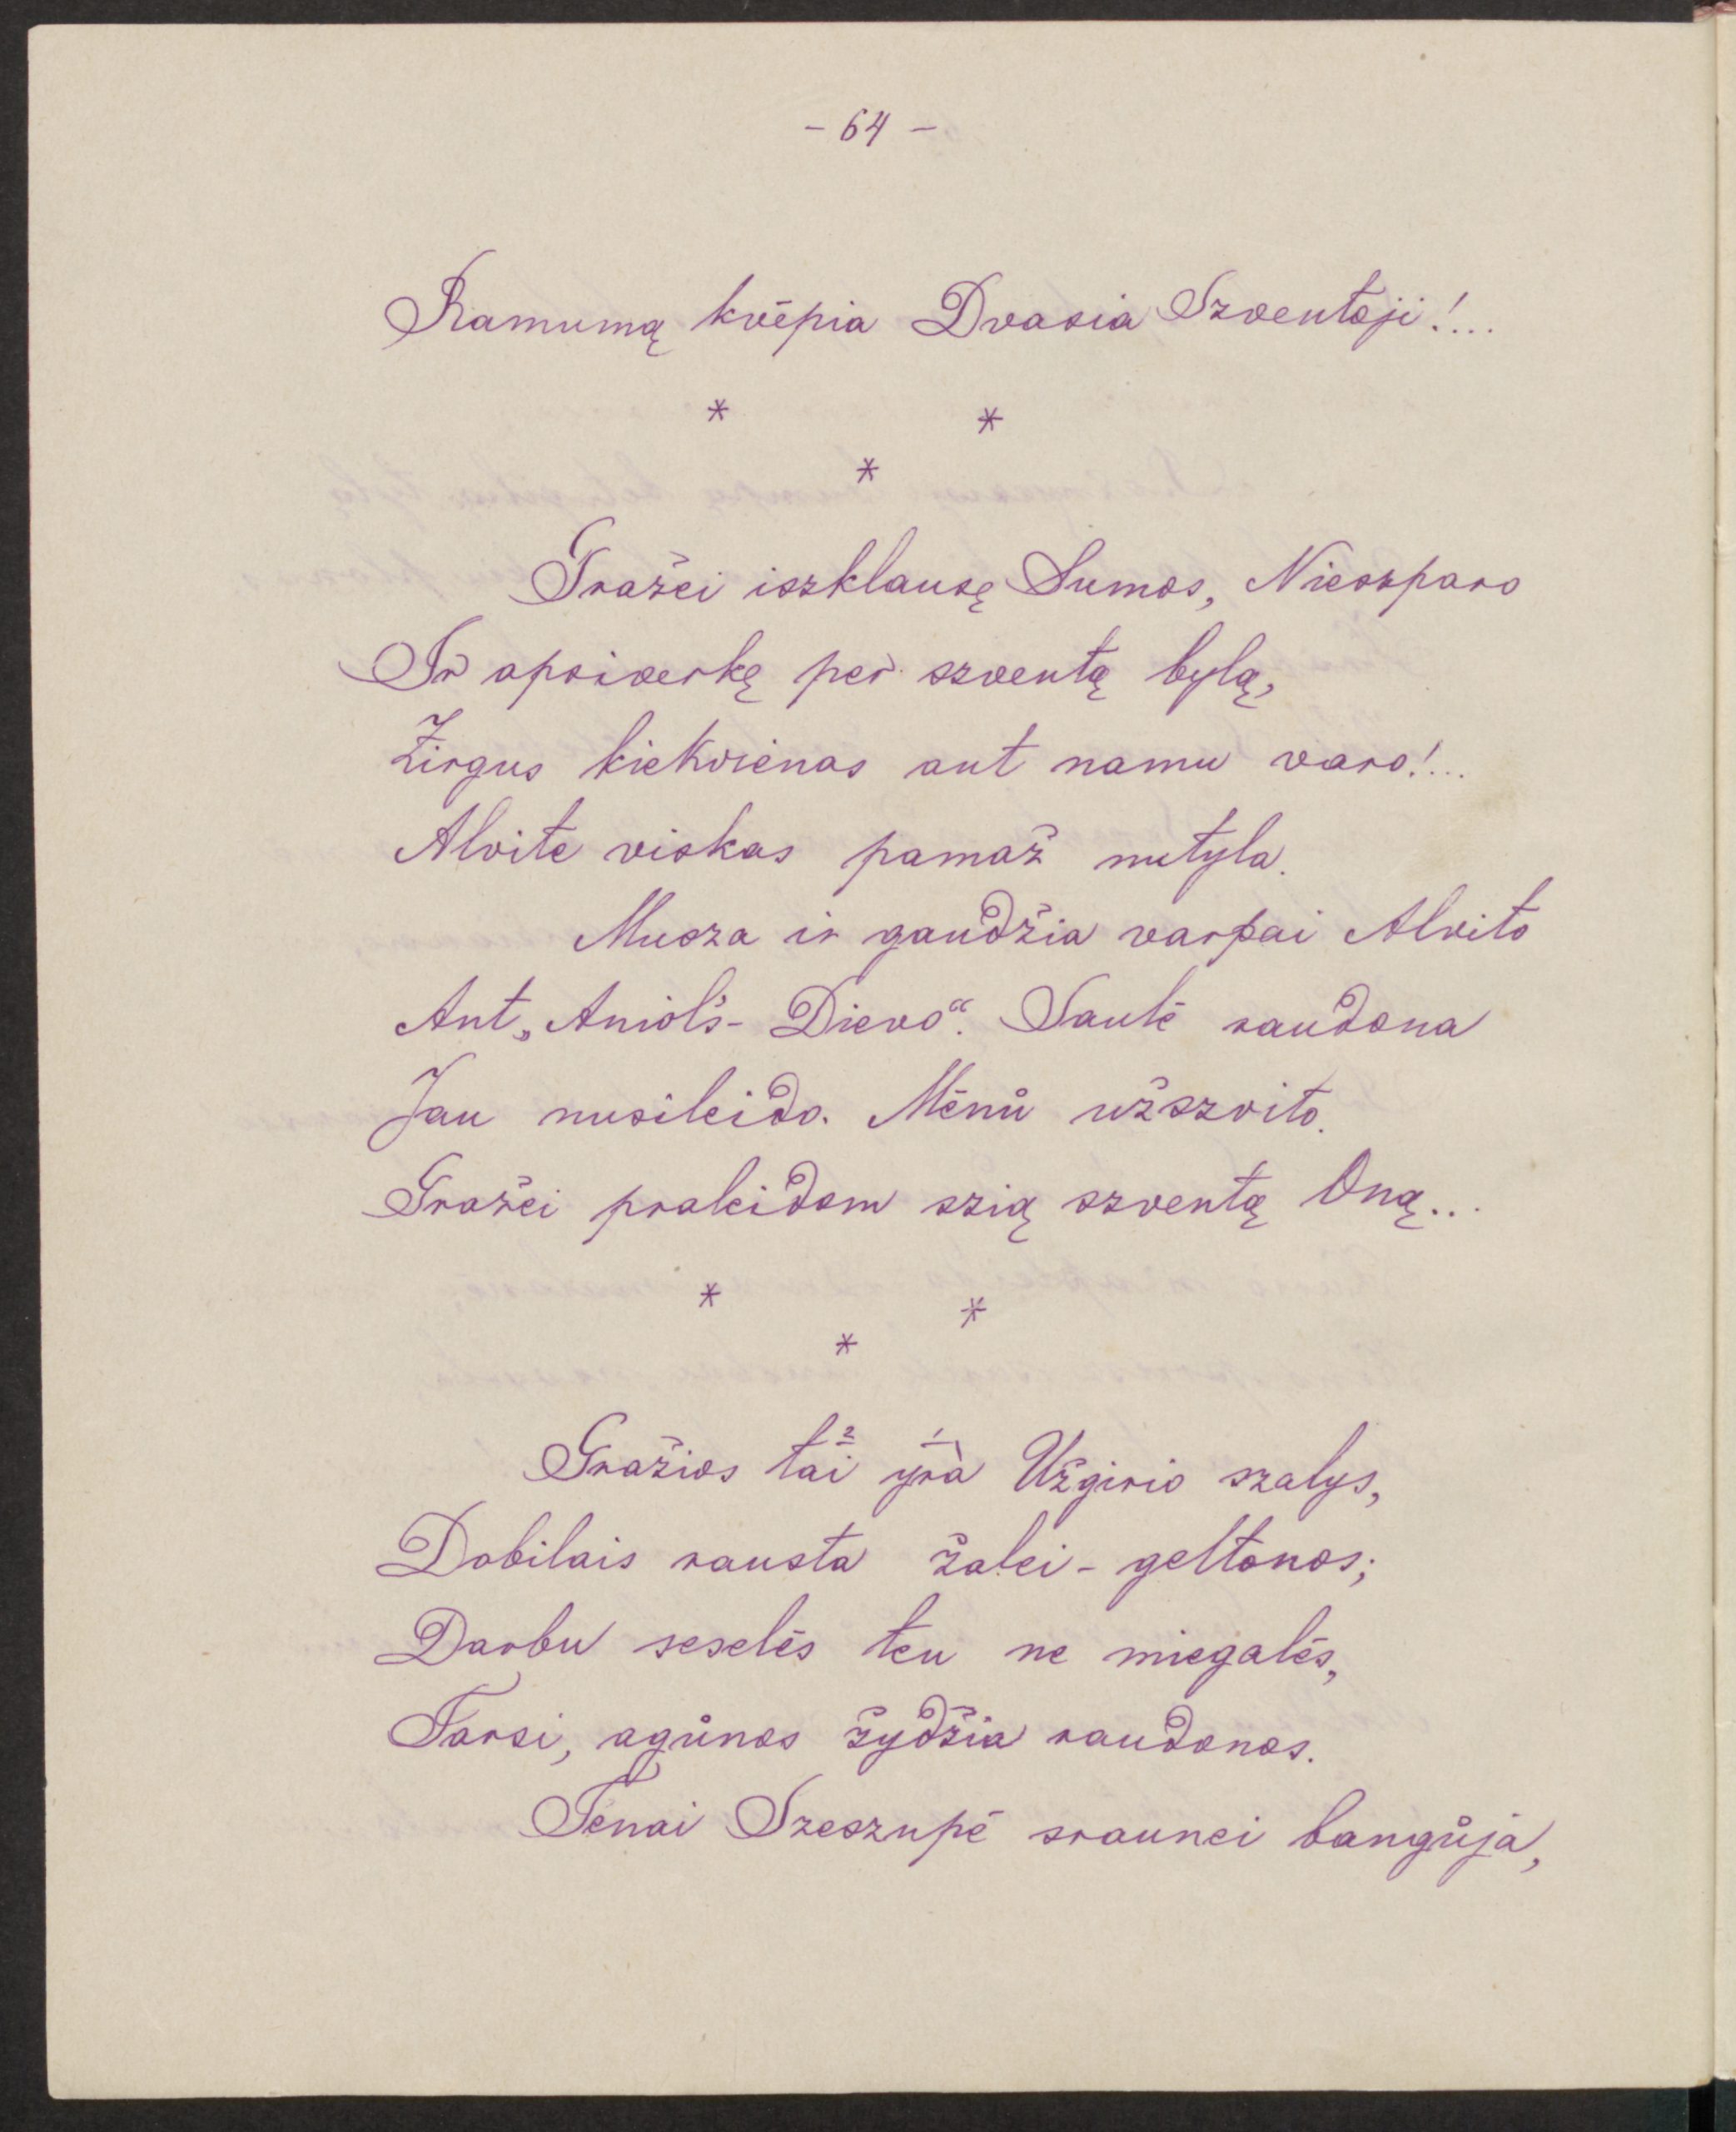 - 64 -
Ramumą kvėpia Dvasia Szventoji!...
* *
*
Gražei iszklausę Sumos, Nieszparo
Ir apsiverkę per szventą bylą,
Žirgus kiekvienas ant namu varo!...
Alvite viskas pamaž nutyla.
Musza ir gaudžia varpai Alvito
Ant „Aniols- Dievo“. Saulė raudona
Jau nusileido. Mėnů užszvito.
Gražei praleidom szią szventą Oną...
* *
*
Gražios tai 2 yrà 1 Užgirio szalys,
Dobilais rausta žalei - geltonos;
Darbu seselės ten ne miegalės,
Tarsi, agůnos žydžia raudonos.
Tenai Szeszupė sraunei bangůja,